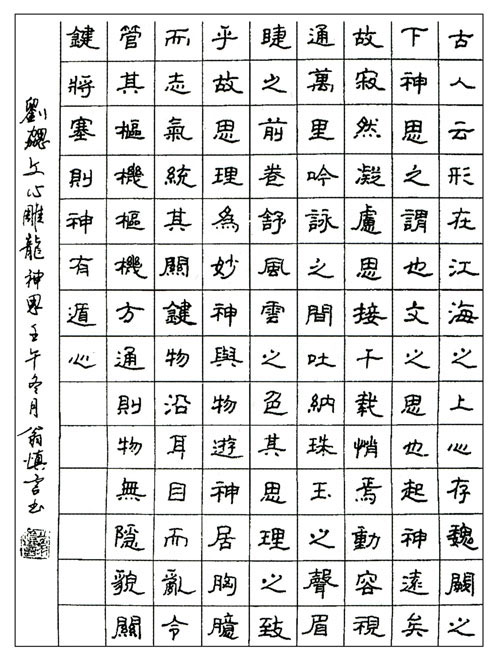 古人云形在江海之上心存魏闕之
下神思之謂也文之思也起神遠矣
故寂然凝慮思接千載悄焉動容視
通萬里吟詠之間吐納珠玉之聲眉
睫之前卷舒風雲之色其思理之致
乎故思理為妙神與物遊神居胸臆
而志氣統其關鍵物沿耳目而亂令
管其樞機樞機方通則物無隱貌關
鍵將塞則神有遁心
劉勰文心雕龍神思壬午冬月翁慎言书